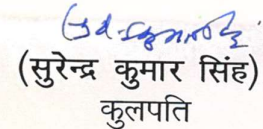 (सुरेन्द्र कुमार सिंह)
कुलपति